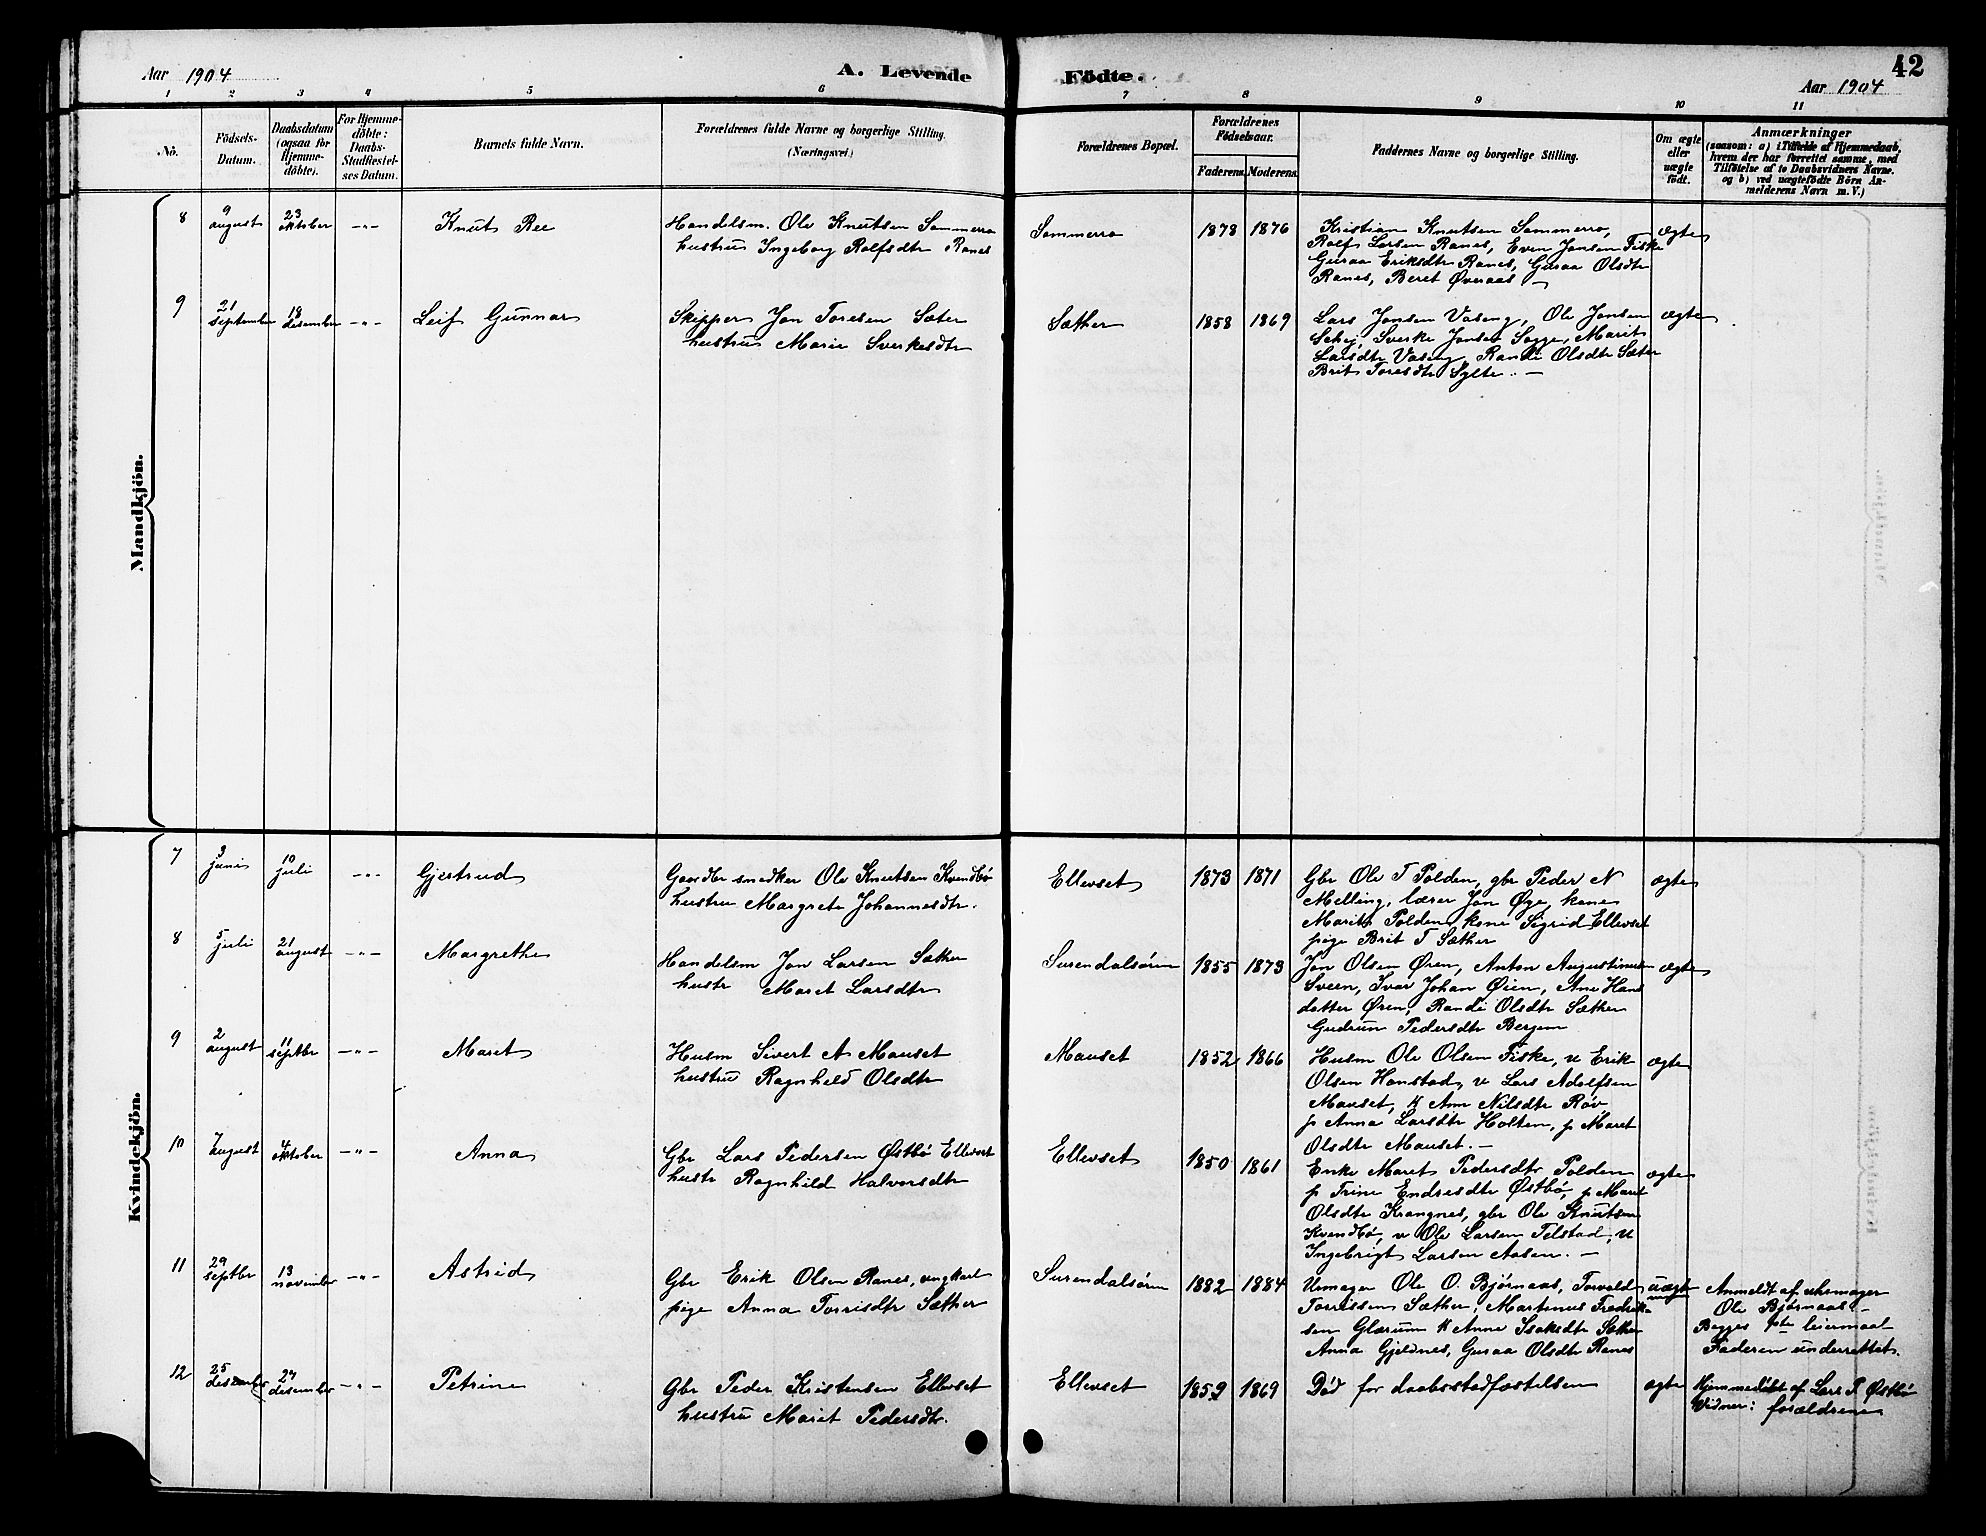 Aar 1904
A. Levende
Födte.
42
Aar 1904
1 2 3 4 5 6 7 8 9 10 11
Nô.
Födsels-
Datum.
Daabsdatum
(ogsaa for
Hjemme-
döbte).
For Hjemme-
döbte:
Daabs-
Stadfæstel-
ses Datum.
Barnets fulde Navn.
Forældrenes fulde Navne og borgerlige Stilling.
(Næringsvei.)
Forældrenes Bopæl.
Forældrenes
Födselsaar.
Faderens. Moderens.
Faddernes Navne og borgerlige Stilling.
Om ægte
eller
uægte
födt.
Anmærkninger
(saasom: a) i Tilfælde af Hjemmedaab,
hvem der har forrettet samme, med
Tilföielse af to Daabsvidners Navne.
og b) ved uægtefödte Börn An-
melderens Navn m. V.)
Mandkjön.
8
9
august
23
oktober
-"-
Knut Ree
Handelsm. Ole Knutsen Sommerro
hustru Ingeborg Rolfsdtr Ranes
Sommerro
1878 1876
Kristian Knutsen Sommerro,
Rolf Larsen Ranes, Even Jonsen Fiske
Guraa Eriksdtr Ranes, Guraa Olsdtr
Ranes, Beret Øveraas —
ægte
9
21
september
18
desember
-"-
Leif Gunnar
Skipper Jon Toresen Sæter
hustru Marie Sverkesdtr
Sæther
1858 1869
Lars Jonsen Vaseng, Ole Jonsen
Schei, Sverke Jonsen Sogge, Marit
Larsdtr Vaseng, Randi Olsdtr Sæter
Brit Toresdtr Sylte. —
ægte
Kvindekjön.
7
3
juni
10
juli
-"-
Gjertrud
Gaardbr snedker Ole Knutsen Kvendbø
hustru Margrete Johannesdtr.
Ellevset
1873 1871
Gbr Ole T Polden, gbr Peder N
Melling, lærer Jon Øye, kone
Marit Polden, kone Sigrid Ellevset
pige Brit T Sæther
ægte
8
5
juli
21
august
-"-
Margrethe
Handelsm Jon Larsen Sæther
hustr Maret Larsdtr
Surendalsøren
1855 1873
Jon Olsen Øren, Anton Augustinusen
Sveen, Ivar Johan Øien, Ane Hans
datter Øren, Randi Olsdtr Sæther
Gudrun Pedersdtr Bergem
ægte
9
2
august
11
septbr
-"-
Maret
Husm Sivert A Mauset
hustru Ragnhild Olsdtr
Mauset
1852 1866
Husm Ole Olsen Fiske, u Erik
Olsen Hanstad, u Lars Adolfsen
Mauset, k Ane Nilsdtr Røv
p Anna Larsdtr Holten, p Maret
Olsdtr Mauset. —
ægte
10
7
august
4
oktober
-"-
Anna
Gbr Lars Pedersen Østbø Ellevset
hustr Ragnhild Halvorsdtr
Ellevset
1850 1861
Enke Maret Pedersdtr Polden
p Trine Endresdtr Østbø, p Maret
Olsdtr Krangnes, gbr Ole Knutsen
Kvendbø, u Ole Larsen Telstad, u
Ingebrigt Larsen Aasen. —
ægte
11
29
septbr
13
november
-"-
Astrid
Gbr Erik Olsen Ranes, ungkarl
pige Anna Torrisdtr Sæther
Surendalsøren
1882 1884
Urmager Ole O. Bjørnaas, Torvald
Torrissen Sæther, Martinus Fredrik-
sen Glærum k Anne Isaksdtr Sæther
Anna Gjeldnes, Guraa Olsdtr Ranes
uægte
Anmeldt af uhrmager
Ole Bjørnaas. —
Begges 1ste leiermaal
Faderen underrettet.
12
25
desember
27
desember
-"-
Petrine
Gbr Peder Kristensen Ellevset
hustru Maret Pedersdtr.
Ellevset
1859 1869
Død før daabsstadfæstelsen
ægte
Hjemmedøbt af Lars P. Østbø
Vidner: forældrene